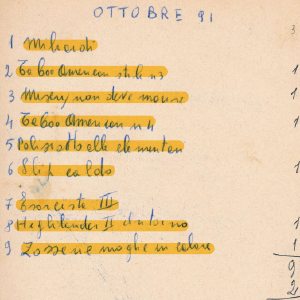 OTTOBRE 91
3
1 Miliardi
2 Taboo American style n3 1
3 Misery non deve morire 1
4 Taboo American n 4 1
5 Poliziotto alle elementari 1
6 Slip caldo 1
7 Esorcista III 1
8 Highlander II il ritorno 1
9 Zozzene moglie in calore 1
9
2